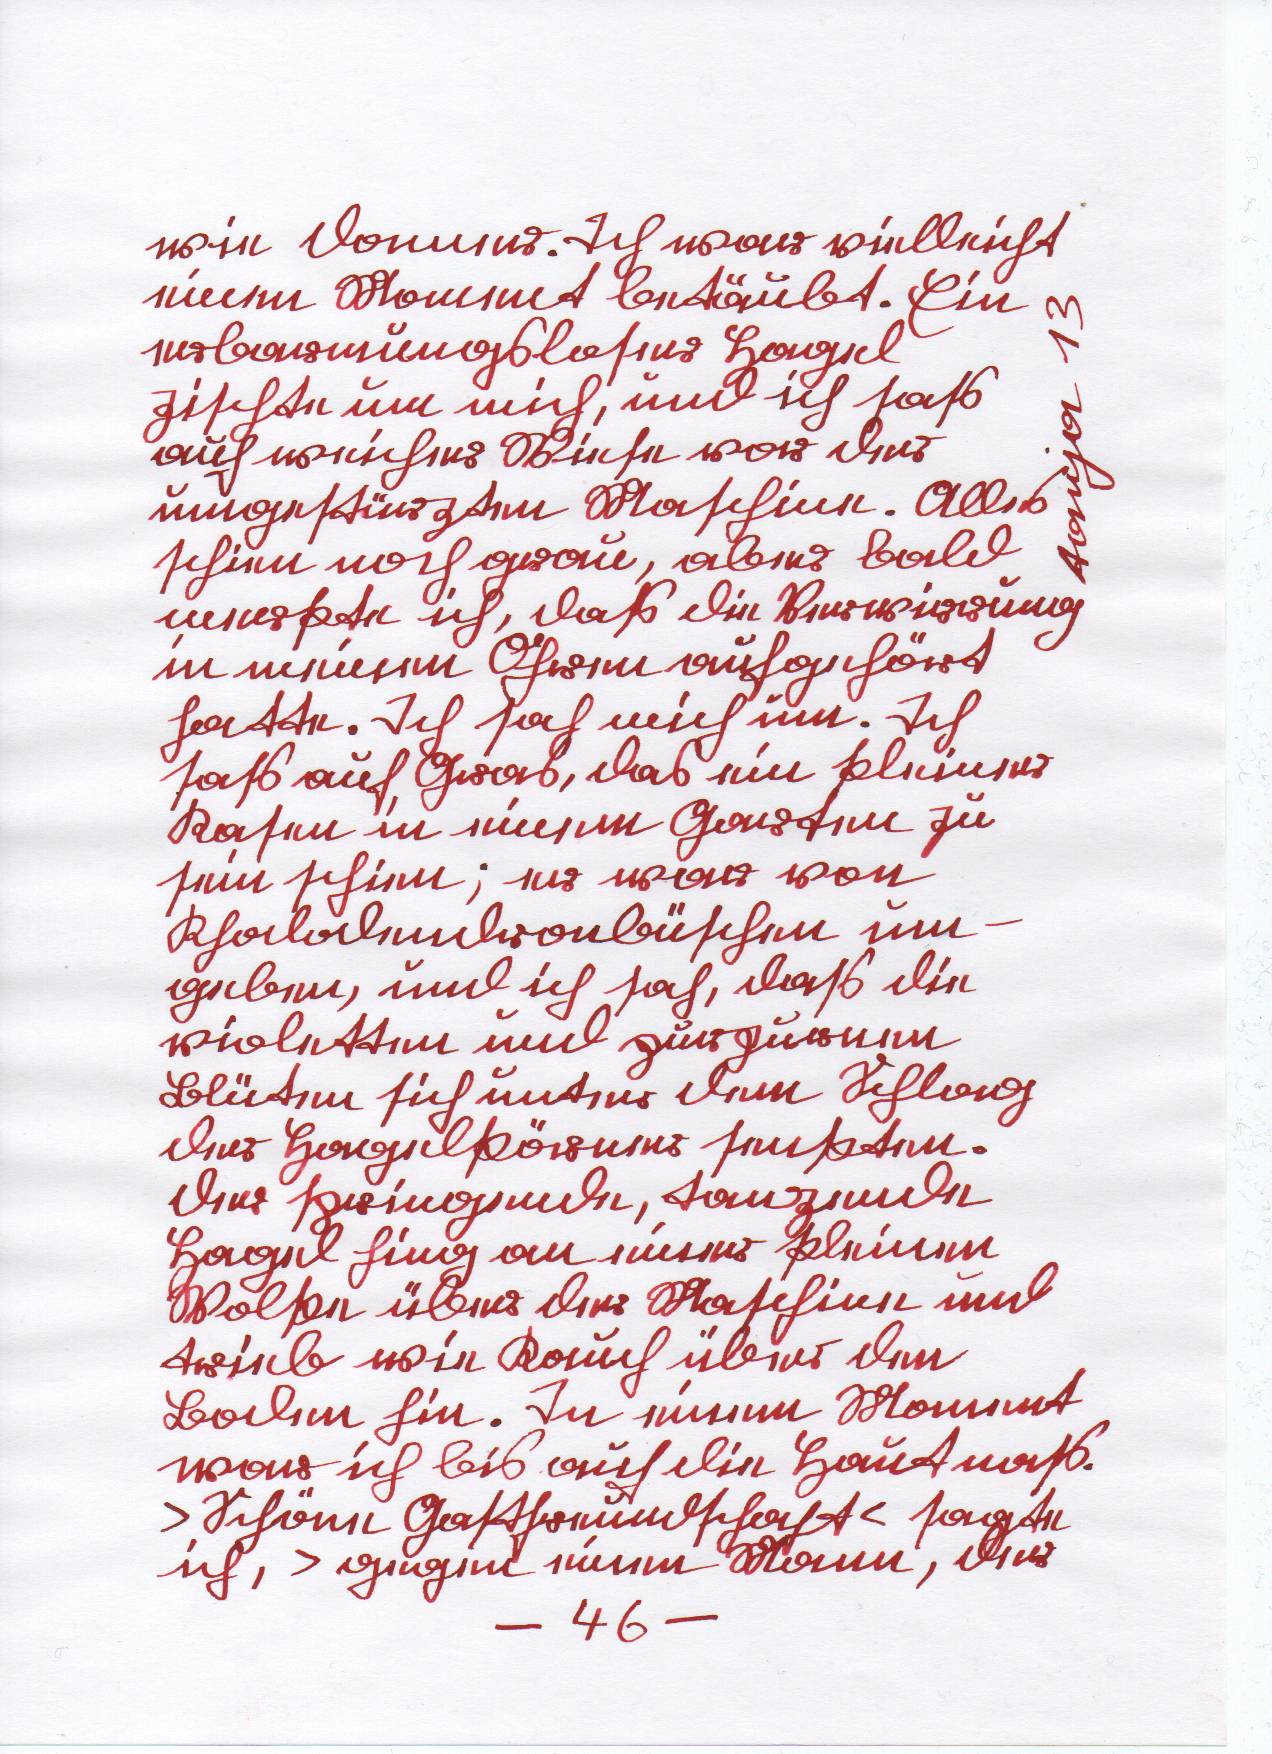 wie Donner. Ich war vielleicht
einen Moment betäubt. Ein
erbarmungsloser Hagel
zischte um mich, und ich saß
auf weicher Wiese vor der
umgestürzten Maschine. Alles
schien noch grau, aber bald
merkte ich, daß die Verwirrung
in meinen Ohren aufgehört
hatte. Ich sah mich um. Ich
saß auf Gras, das ein kleiner
Rasen in einem Garten zu
sein schien; er war von
Rhododendronbüschen um-
geben, und ich sah, daß die
violetten und purpurnen
Blüten sich unter dem Schlag
der Hagelkörner senkten.
Der springende, tanzende
Hagel hing an einer kleinen
Wolke über der Maschine und
trieb wie Rauch über den
Boden hin. In einem Moment
war ich bis auf die Haut naß.
>Schöne Gastfreundschaft< sagte
ich, >gegen einen Mann, der
— 46 —
Anija 13